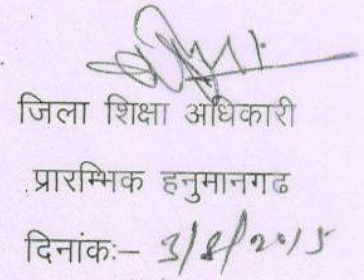 जिला शिक्षा अधिकारी
प्रारम्भिक हनुमानगढ
दिनांक:– 3/8/2015